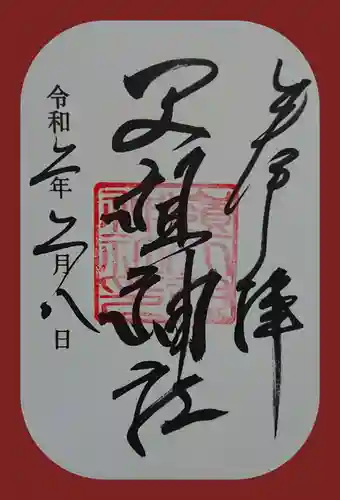 奉拝
天祖神社
令和二年二月八日